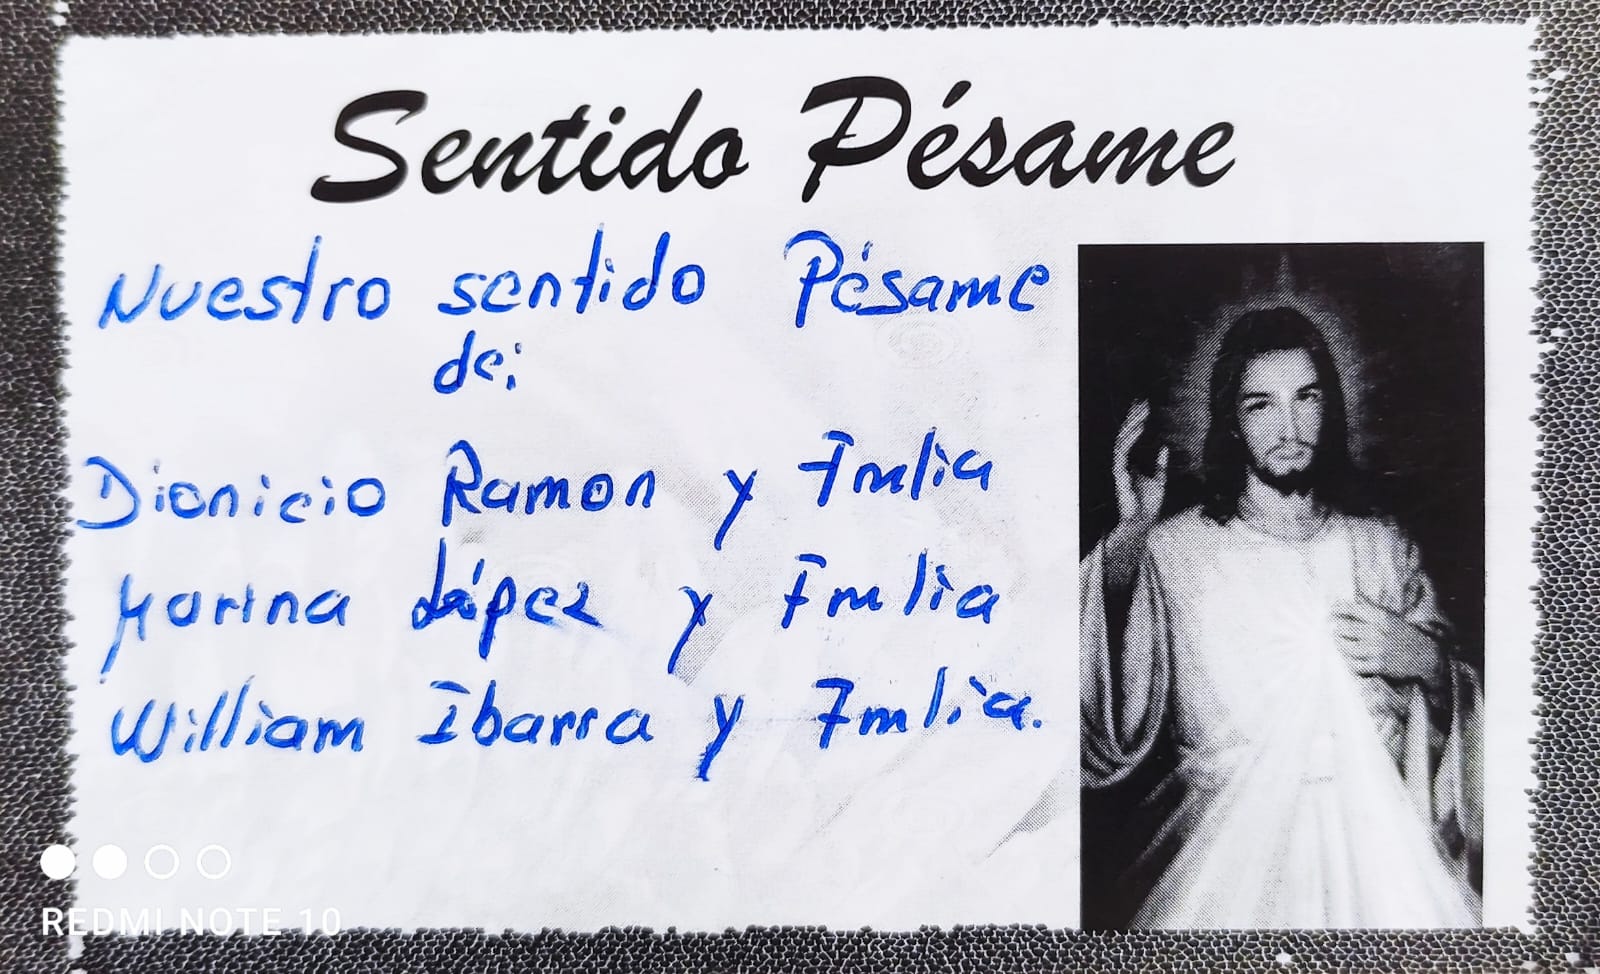 Sentido Pésame
Nuestro sentido Pésame
de:
Dionicio Ramon y Fmlia
Marina López y Fmlia
William Ibarra y Fmlia.
REDMI NOTE 10